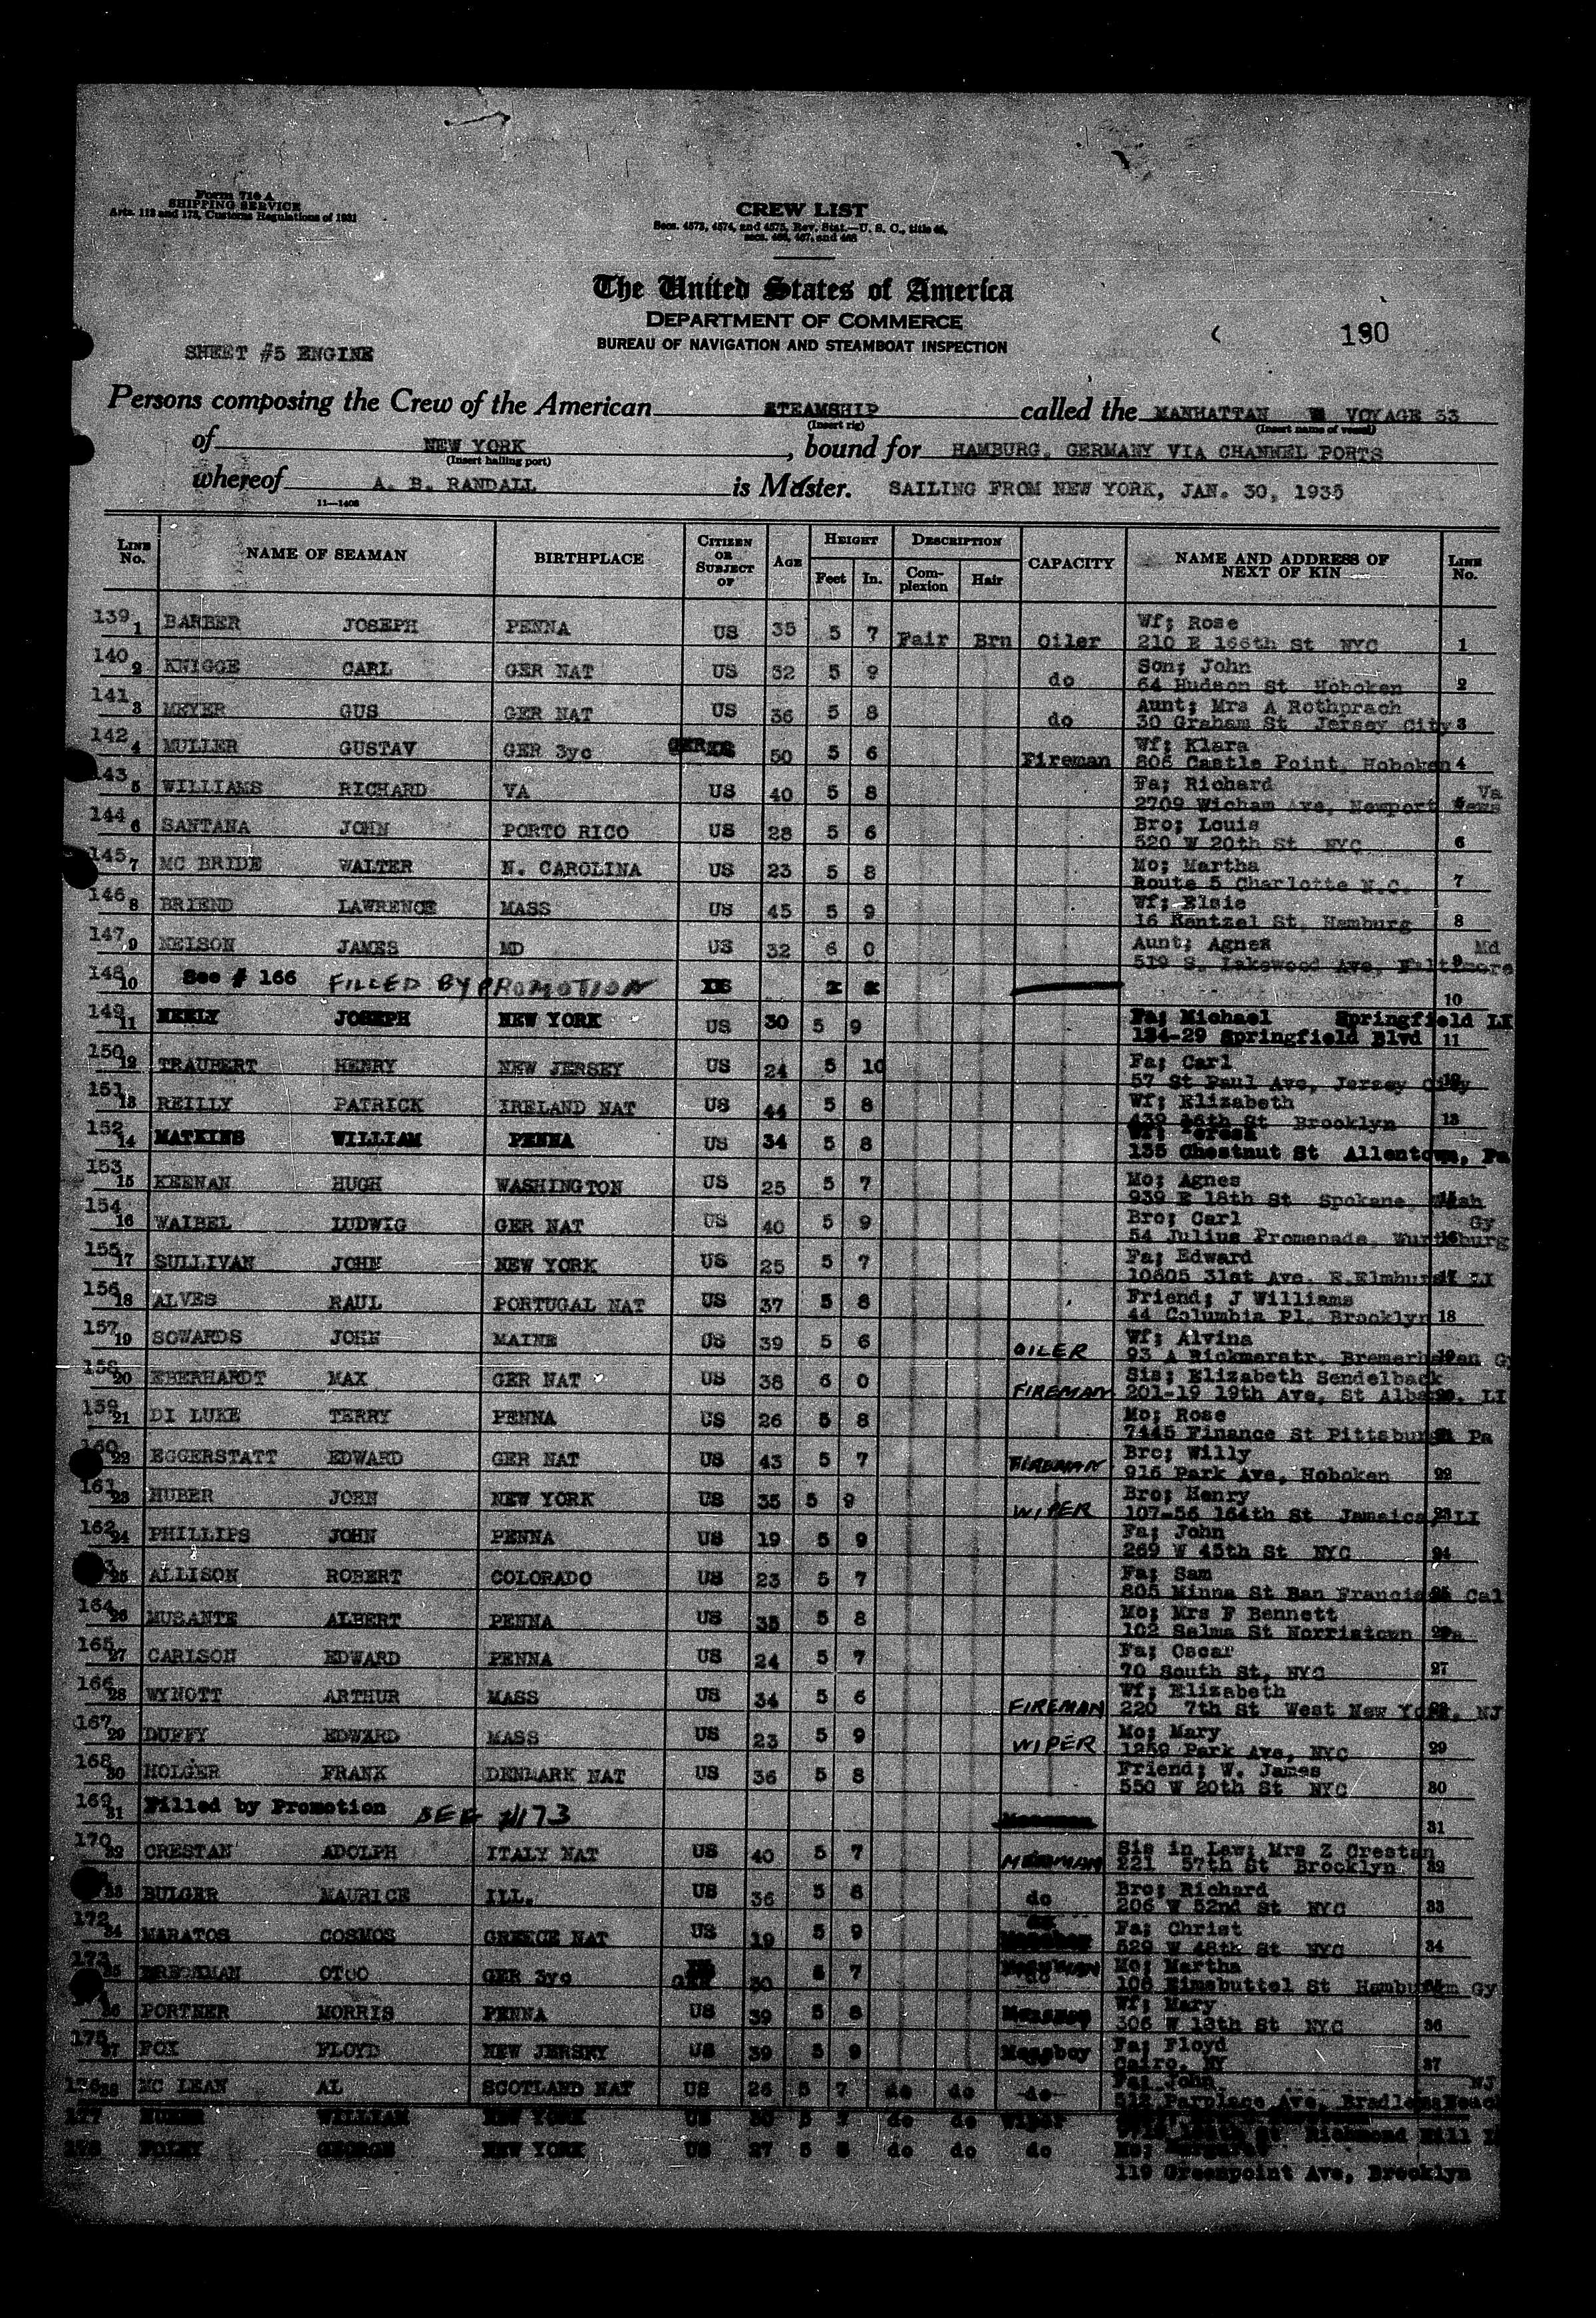 Form 710 A
SHIPPING SERVICE
Arts. 112 and 173, Customs Regulations of 1931
CREW LIST
Secs. 4573, 4574, and 4575, Rev. Stat.—U. S. C., title 46,
secs. 466, 467, and 468
The United States of America
DEPARTMENT OF COMMERCE
BUREAU OF NAVIGATION AND STEAMBOAT INSPECTION
190
SHEET #5 ENGINE
Persons composing the Crew of the American STEAMSHIP called the MANHATTAN VOYAGE 33
(Insert rig) (Insert name of vessel)
of NEW YORK, bound for HAMBURG, GERMANY VIA CHANNEL PORTS
(Insert hailing port)
whereof A. B. RANDALL is Master. SAILING FROM NEW YORK, JAN. 30, 1935
11—1408
LINE No. NAME OF SEAMAN BIRTHPLACE CITIZEN OR SUBJECT OF AGE HEIGHT Feet In. DESCRIPTION Complexion Hair CAPACITY NAME AND ADDRESS OF NEXT OF KIN LINE No.
139 1 BARBER JOSEPH PENNA US 35 5 7 Fair Brn Oiler Wf; Rose
210 E 166th St NYC 1
140 2 KNIGGE CARL GER NAT US 32 5 9 do Son; John
64 Hudson St Hoboken 2
141 3 MEYER GUS GER NAT US 36 5 8 do Aunt; Mrs A Rothprach
30 Graham St Jersey City 3
142 4 MULLER GUSTAV GER 3yc GER 50 5 6 Fireman Wf; Klara
806 Castle Point, Hoboken 4
143 5 WILLIAMS RICHARD VA US 40 5 8 Fa; Richard Va
2709 Wicham Ave, Newport News
144 6 SANTANA JOHN PORTO RICO US 28 5 6 Bro; Louis
520 W 20th St NYC 6
145 7 MC BRIDE WALTER N. CAROLINA US 23 5 8 Mo; Martha
Route 5 Charlotte N.C. 7
146 8 BRIEND LAWRENCE MASS US 45 5 9 Wf; Elsie
16 Kentzel St, Hamburg 8
147 9 NELSON JAMES MD US 32 6 0 Aunt; Agnes Md
519 S. Lakewood Ave, Baltimore 9
148 10 See # 166 FILLED BY PROMOTION
10
149 11 NEELY JOSEPH NEW YORK US 30 5 9 Fa; Michael Springfield LI
134-29 Springfield Blvd 11
150 12 TRAUBERT HENRY NEW JERSEY US 24 5 10 Fa; Carl
57 St Paul Ave, Jersey City
151 13 REILLY PATRICK IRELAND NAT US 44 5 8 Wf; Elizabeth
St Brooklyn 13
152 14 MATKINS WILLIAM PENNA US 34 5 8 Wf; Teresa
135 Chestnut St Allentown, Pa
153 15 KEENAN HUGH WASHINGTON US 25 5 7 Mo; Agnes
939 E 18th St Spokane, Wash
154 16 WAIBEL LUDWIG GER NAT US 40 5 9 Bro; Carl Gy
54 Julius Promenade, Wurtzburg
155 17 SULLIVAN JOHN NEW YORK US 25 5 7 Fa; Edward
10805 31st Ave. E.Elmhurst LI
156 18 ALVES RAUL PORTUGAL NAT US 37 5 8 Friend; J Williams
44 Columbia Pl. Brooklyn 18
157 19 SOWARDS JOHN MAINE US 39 5 6 OILER Wf; Alvina
93 A Rickmerstr, Bremerhaven Gy
158 20 EBERHARDT MAX GER NAT US 38 6 0 FIREMAN Sis; Elizabeth Sendelback
201-19 19th Ave, St Albans, LI
159 21 DI LUKE TERRY PENNA US 26 5 8 Mo; Rose
7445 Finance St Pittsburgh Pa
160 22 EGGERSTATT EDWARD GER NAT US 43 5 7 FIREMAN Bro; Willy
916 Park Ave, Hoboken 22
161 23 HUBER JOHN NEW YORK US 35 5 9 WIPER Bro; Henry
107-56 164th St Jamaica, LI
162 24 PHILLIPS JOHN PENNA US 19 5 9 Fa; John
269 W 45th St NYC 24
25 ALLISON ROBERT COLORADO US 23 5 7 Fa; Sam
805 Minna St San Francisco Cal
164 26 MUSANTE ALBERT PENNA US 35 5 8 Mo; Mrs F Bennett
102 Selma St Norristown Pa
165 27 CARLSON EDWARD PENNA US 24 5 7 Fa; Oscar
70 South St, NYC 27
166 28 WYNOTT ARTHUR MASS US 34 5 6 FIREMAN Wf; Elizabeth
220 7th St West New York, NJ
167 29 DUFFY EDWARD MASS US 23 5 9 WIPER Mo; Mary
1259 Park Ave, NYC 29
168 30 HOLGER FRANK DENMARK NAT US 36 5 8 Friend; W. James
550 W 20th St NYC 30
169 31 Filled by Promotion SEE #173
31
170 32 CRESTAN ADOLPH ITALY NAT US 40 5 7 MESSMAN Sis in Law; Mrs Z Crestan
221 57th St Brooklyn 32
33 BULGER MAURICE ILL. US 36 5 8 do Bro; Richard
206 W 52nd St NYC 33
172 34 MARATOS COSMOS GREECE NAT US 19 5 9 Fa; Christ
529 W 48th St NYC 34
173 35 OTTO GER 3yc GER 30 5 7 Mo; Martha
108 Eimsbuttel St Hamburg Gy
36 PORTNER MORRIS PENNA US 39 5 8 Wf; Mary
306 W 13th St NYC 36
175 37 FOX FLOYD NEW JERSEY US 39 5 9 Messboy Fa; Floyd
Cairo, NY 37
176 38 MC LEAN AL SCOTLAND NAT US 26 5 7 do do do Fa; John NJ
Ave,
177 WILLIAM NEW YORK US 30 5 7 do do Wiper
Richmond Hill
178 FOLEY GEORGE NEW YORK US 27 5 8 do do do Mo; Margaret
119 Greenpoint Ave, Brooklyn